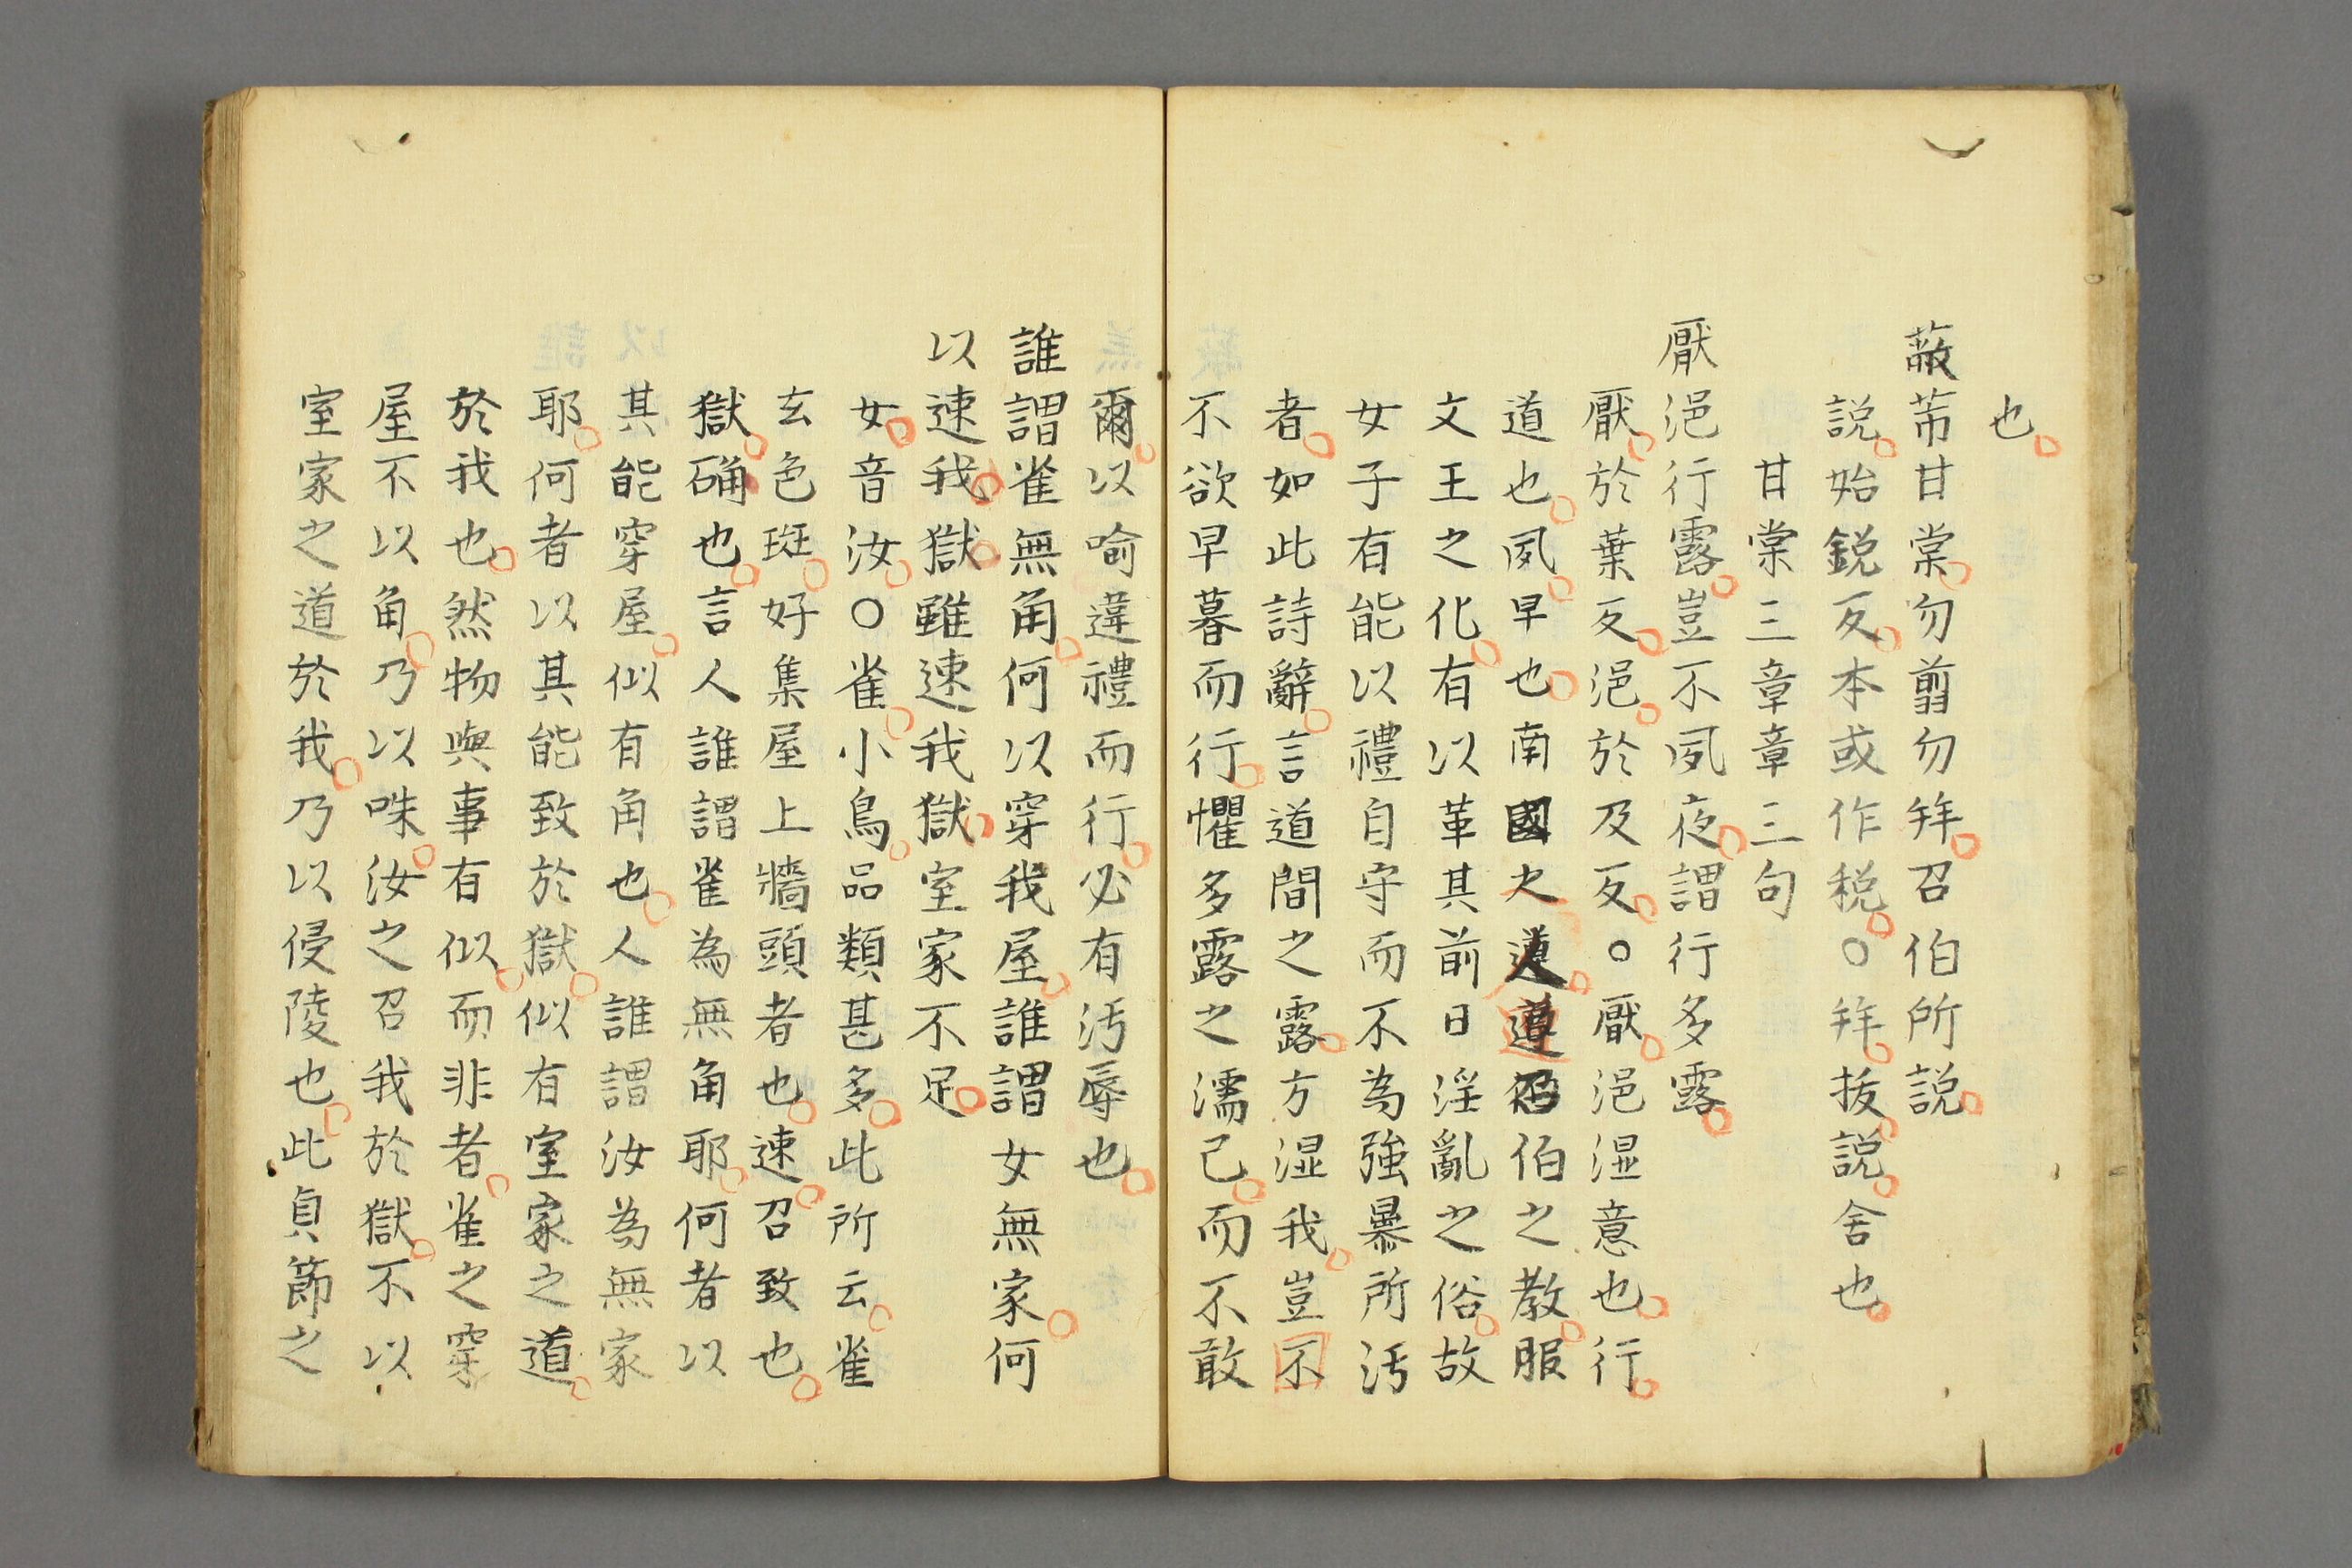 也
蔽芾甘棠勿翦勿拜召伯所説
説始鋭反本或作税○拜拔説舍也
甘棠三章章三句
厭浥行露豈不夙夜謂行多露
厭於葉反浥於及反○厭浥湿意也行
道也夙早也南國之人遵召伯之教服
文王之化有以革其前日淫亂之俗故
女子有能以禮自守而不為強暴所汚
者如此詩辭言道間之露方湿我豈不
不欲早暮而行懼多露之濡己而不敢
爾以喻違禮而行必有汚辱也
誰謂雀無角何以穿我屋誰謂女無家何
以速我獄雖速我獄室家不足
女音汝○雀小鳥品類甚多此所云雀
玄色斑好集屋上牆頭者也速召致也
獄确也言人誰謂雀為無角耶何者以
其能穿屋似有角也人誰謂汝為無家
耶何者以其能致於獄似有室家之道
於我也然物與事有似而非者雀之穿
屋不以角乃以咮汝之召我於獄不以
室家之道於我乃以侵陵也此貞節之